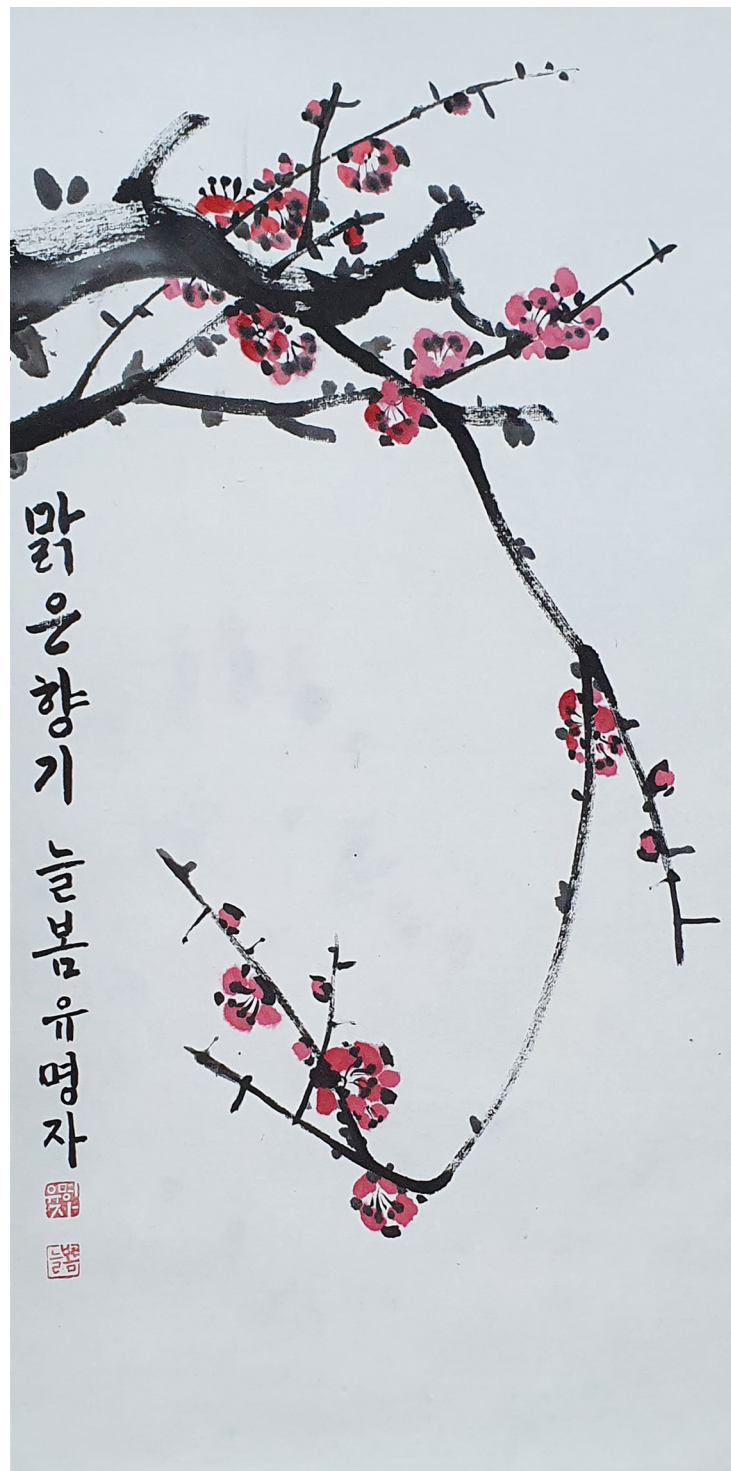 맑은향기 늘봄유명자
유명자
늘봄